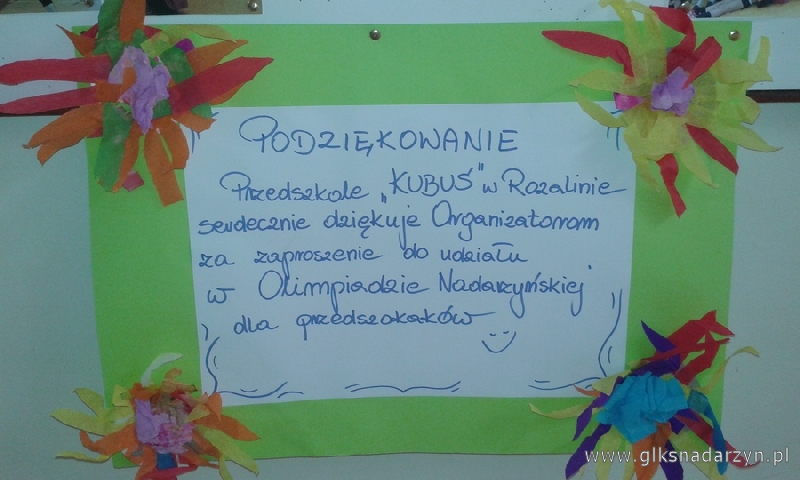 PODZIĘKOWANIE
Przedszkole „KUBUŚ” w Rozalinie
serdecznie dziękuje Organizatorom
za zaproszenie do udziału
w Olimpiadzie Nadarzyńskiej
dla przedszkoaków
www.glksnadarzyn.pl